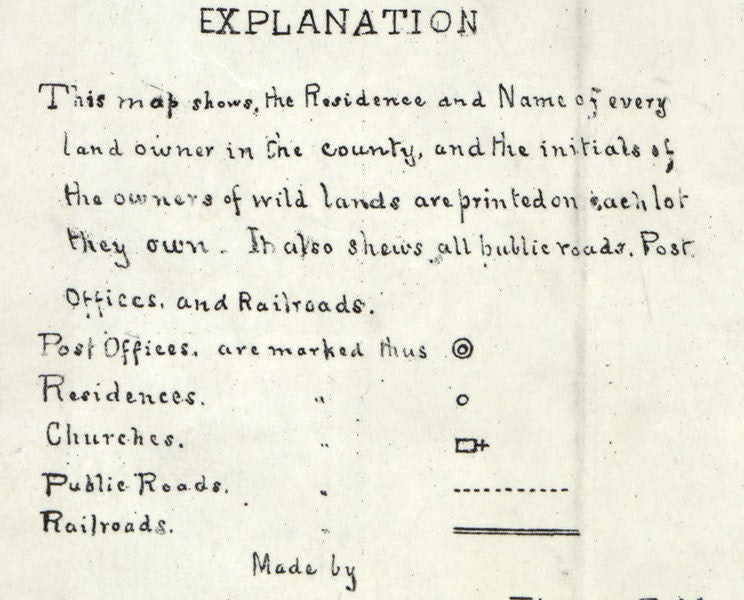 EXPLANATION
This map shows, the Residence and Name of every
land owner in the county, and the initials of
the owners of wild lands are printed on each lot
they own. It also shows all public roads. Post
Offices. and Railroads.
Post Offices. are marked thus
Residences. "
Churches. "
Public Roads. "
Railroads. "
Made by